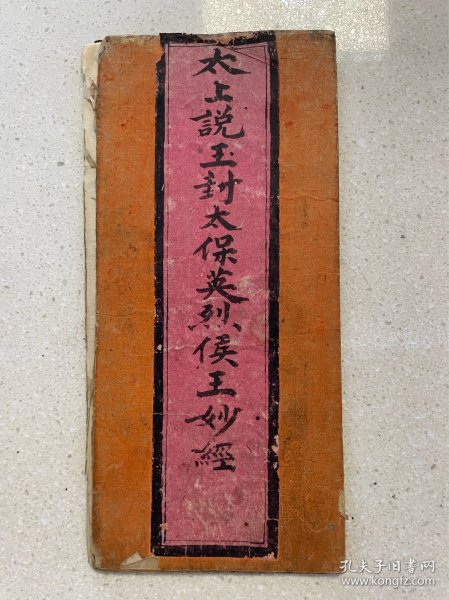 太上説玉封太保英烈侯王妙經
孔夫子旧书网
www.kongfz.com